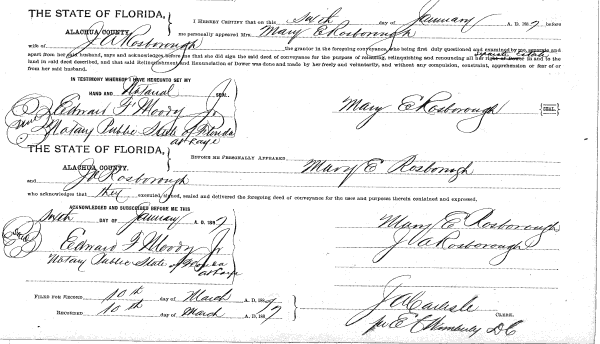 THE STATE OF FLORIDA,
ALACHUA COUNTY.
I HEREBY CERTIFY that on this Sixth day of January A. D. 1897, before
me personally appeared Mrs. Mary E Rosborough
wife of J A Rosborough the grantor in the foregoing conveyance, who being first duly questioned and examined by me separate and
apart from her said husband, says and acknowledges before me that she did sign the said deed of conveyance for the purpose of releasing, relinquishing and renouncing all her separate estate right of dower in and to the
land in said deed described, and that said Relinquishment and Renunciation of Dower was done and made by her freely and voluntarily, and without any compulsion, constraint, apprehension or fear of or
from her said husband.
IN TESTIMONY WHEREOF I HAVE HEREUNTO SET MY
HAND AND Notarial SEAL.
Mary E Rosborough SEAL
Seal
Edward F Moody Jr
Notary Public State of Florida
at Large
THE STATE OF FLORIDA,
ALACHUA COUNTY.
BEFORE ME PERSONALLY APPEARED Mary E Rosborough
and J A Rosborough
who acknowledges that they executed, signed, sealed and delivered the foregoing deed of conveyance for the uses and purposes therein contained and expressed.
ACKNOWLEDGED AND SUBSCRIBED BEFORE ME THIS
Sixth DAY OF January A. D. 1897
Mary E Rosborough
J A Rosborough
Seal
Edward F Moody Jr
Notary Public State of Florida
at Large
FILED FOR RECORD 10th day of March A. D. 1897
RECORDED 10th day of March A. D. 1897
J A Carlisle CLERK.
per E C Wimberly D C